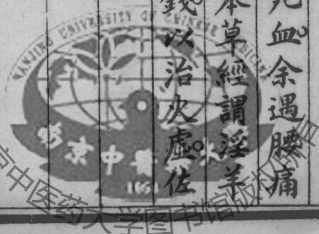 死血余遇腰痛
本草經謂淫羊
錢以治火虛佐
NANJING UNIVERSITY OF CHINESE MEDICINE
南京中醫
京中医药大学图书馆